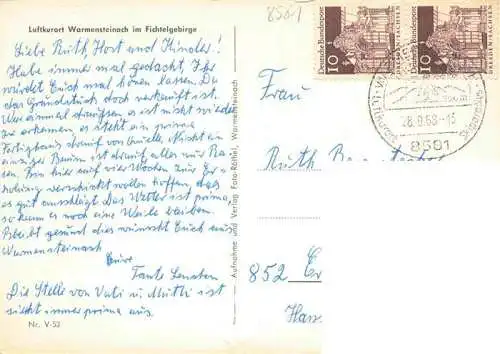 8581
Luftkurort Warmensteinach im Fichtelgebirge
Liebe Ruth, Horst und Kinder!
Habe immer mal gedacht, Ihr
würdet Euch mal hören lassen. Da
das Grundstück doch verkauft ist.
Wer einmal draußen es ist nicht wieder
zu erkennen es steht ein prima
Fertighaus drauf von Quelle. Nicht ein
einziger Baum ist drauf alles nur Ra-
sen. Bin hier auf vier Wochen zur Er-
holung verschickt wollen hoffen, daß
es gut anschlägt. Das Wetter ist prima
so kann es noch eine Weile bleiben.
Bleibt gesund dies wünscht Euch aus
Warmensteinach
Eure
Tante
Die Stelle von Vati u. Mutti ist
sieht immer prima aus.
Nr. V-53
Aufnahme und Verlag Foto-Röthel, Warmensteinach
Deutsche Bundespost
10
Deutsche Bundespost
10
28.9.68-15
8581
Frau
Ruth
852 Er